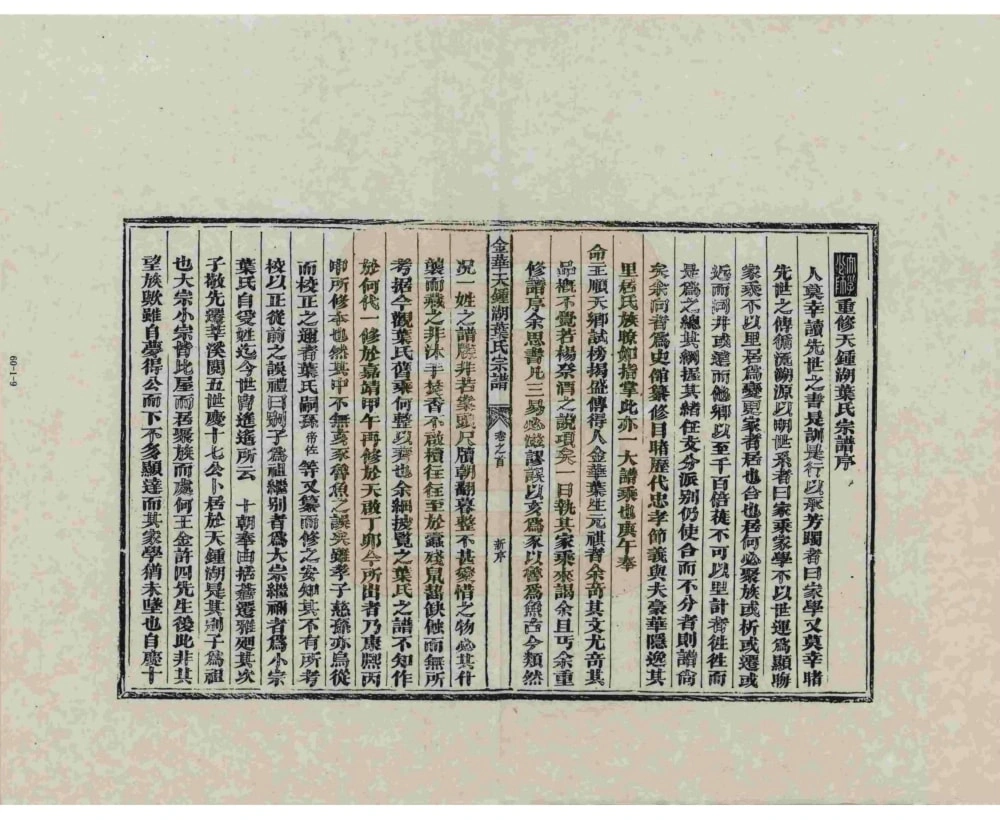 重修天鍾湖葉氏宗譜序
人莫幸讀先世之書是訓是行以承芳躅者曰家學又莫幸睹
先世之傳循流溯源以明世系者曰家乘家學不以世運為顯晦
家乘不以里居為變更家者居也合也居何必聚族或析或遷或
近而同井或遠而他鄉以至千百倍蓰不可以里計者徃徃而
是為之總其綱握其緒任支分派別仍使合而不分者則譜尚
矣余向者為史館纂修目睹歷代忠孝節義與夫豪華隱逸其
里居氏族瞭如指掌此亦一大譜乘也庚午奉
命王順天鄉試榜揭盛傳得人金華葉生元祺者余奇其文尤奇其
品概不覺若楊祭酒之說項矣一日執其家乘來謁余且丐余重
修譜序余思書凡三易必滋謬誤以亥為豕以魯為魚古今類然
金華天鍾湖葉氏宗譜 卷之首 新序
況一姓之譜牒非若案頭尺牘朝翻暮整不甚愛惜之物必其什
襲而藏之非沐手焚香不敢櫝往往至於蠹殘鼠齧缺蝕而無所
考据今觀葉氏舊乘何整以齊也余細披覧之葉氏之譜不知作
於何代一修於嘉靖甲午再修於天啟丁卯今所出者乃康熙丙
申所修本也然其中不無亥豕魯魚之誤矣雖孝子慈孫亦烏從
而校正之邇者葉氏嗣孫 等又纂而修之安知其不有所考
校以正從前之誤禮曰別子為祖繼別者為大宗繼禰者為小宗
葉氏自受姓迄今世胄遙遙所云 十朝奉由括蒼遷雅廻其次
子敬先遷莘溪閱五世慶十七公卜居於天鍾湖是其別子為祖
也大宗小宗皆比屋而居聚族而處何王金許四先生後此非其
望族歟雖自慶得公而下不多顯達而其家學猶未墜也自慶十
09-1-6